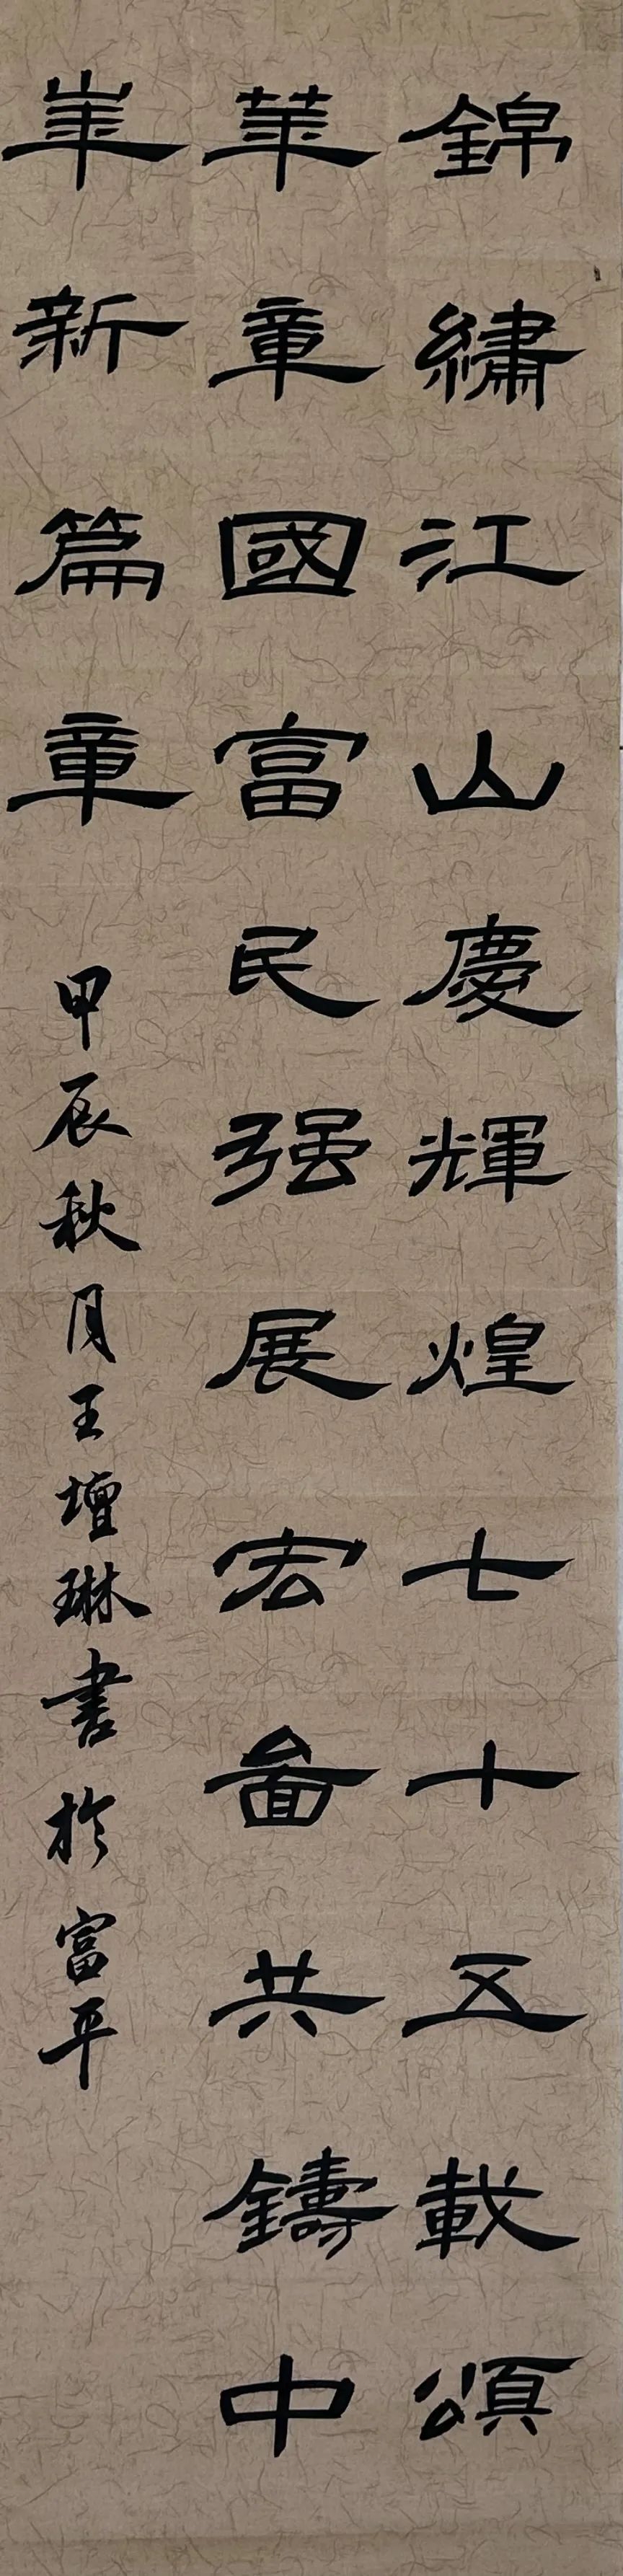 錦繡江山慶輝煌七十五載頌
華章國富民强展宏啚共鑄中
崋新篇章
甲辰秋月王壇琳書於富平